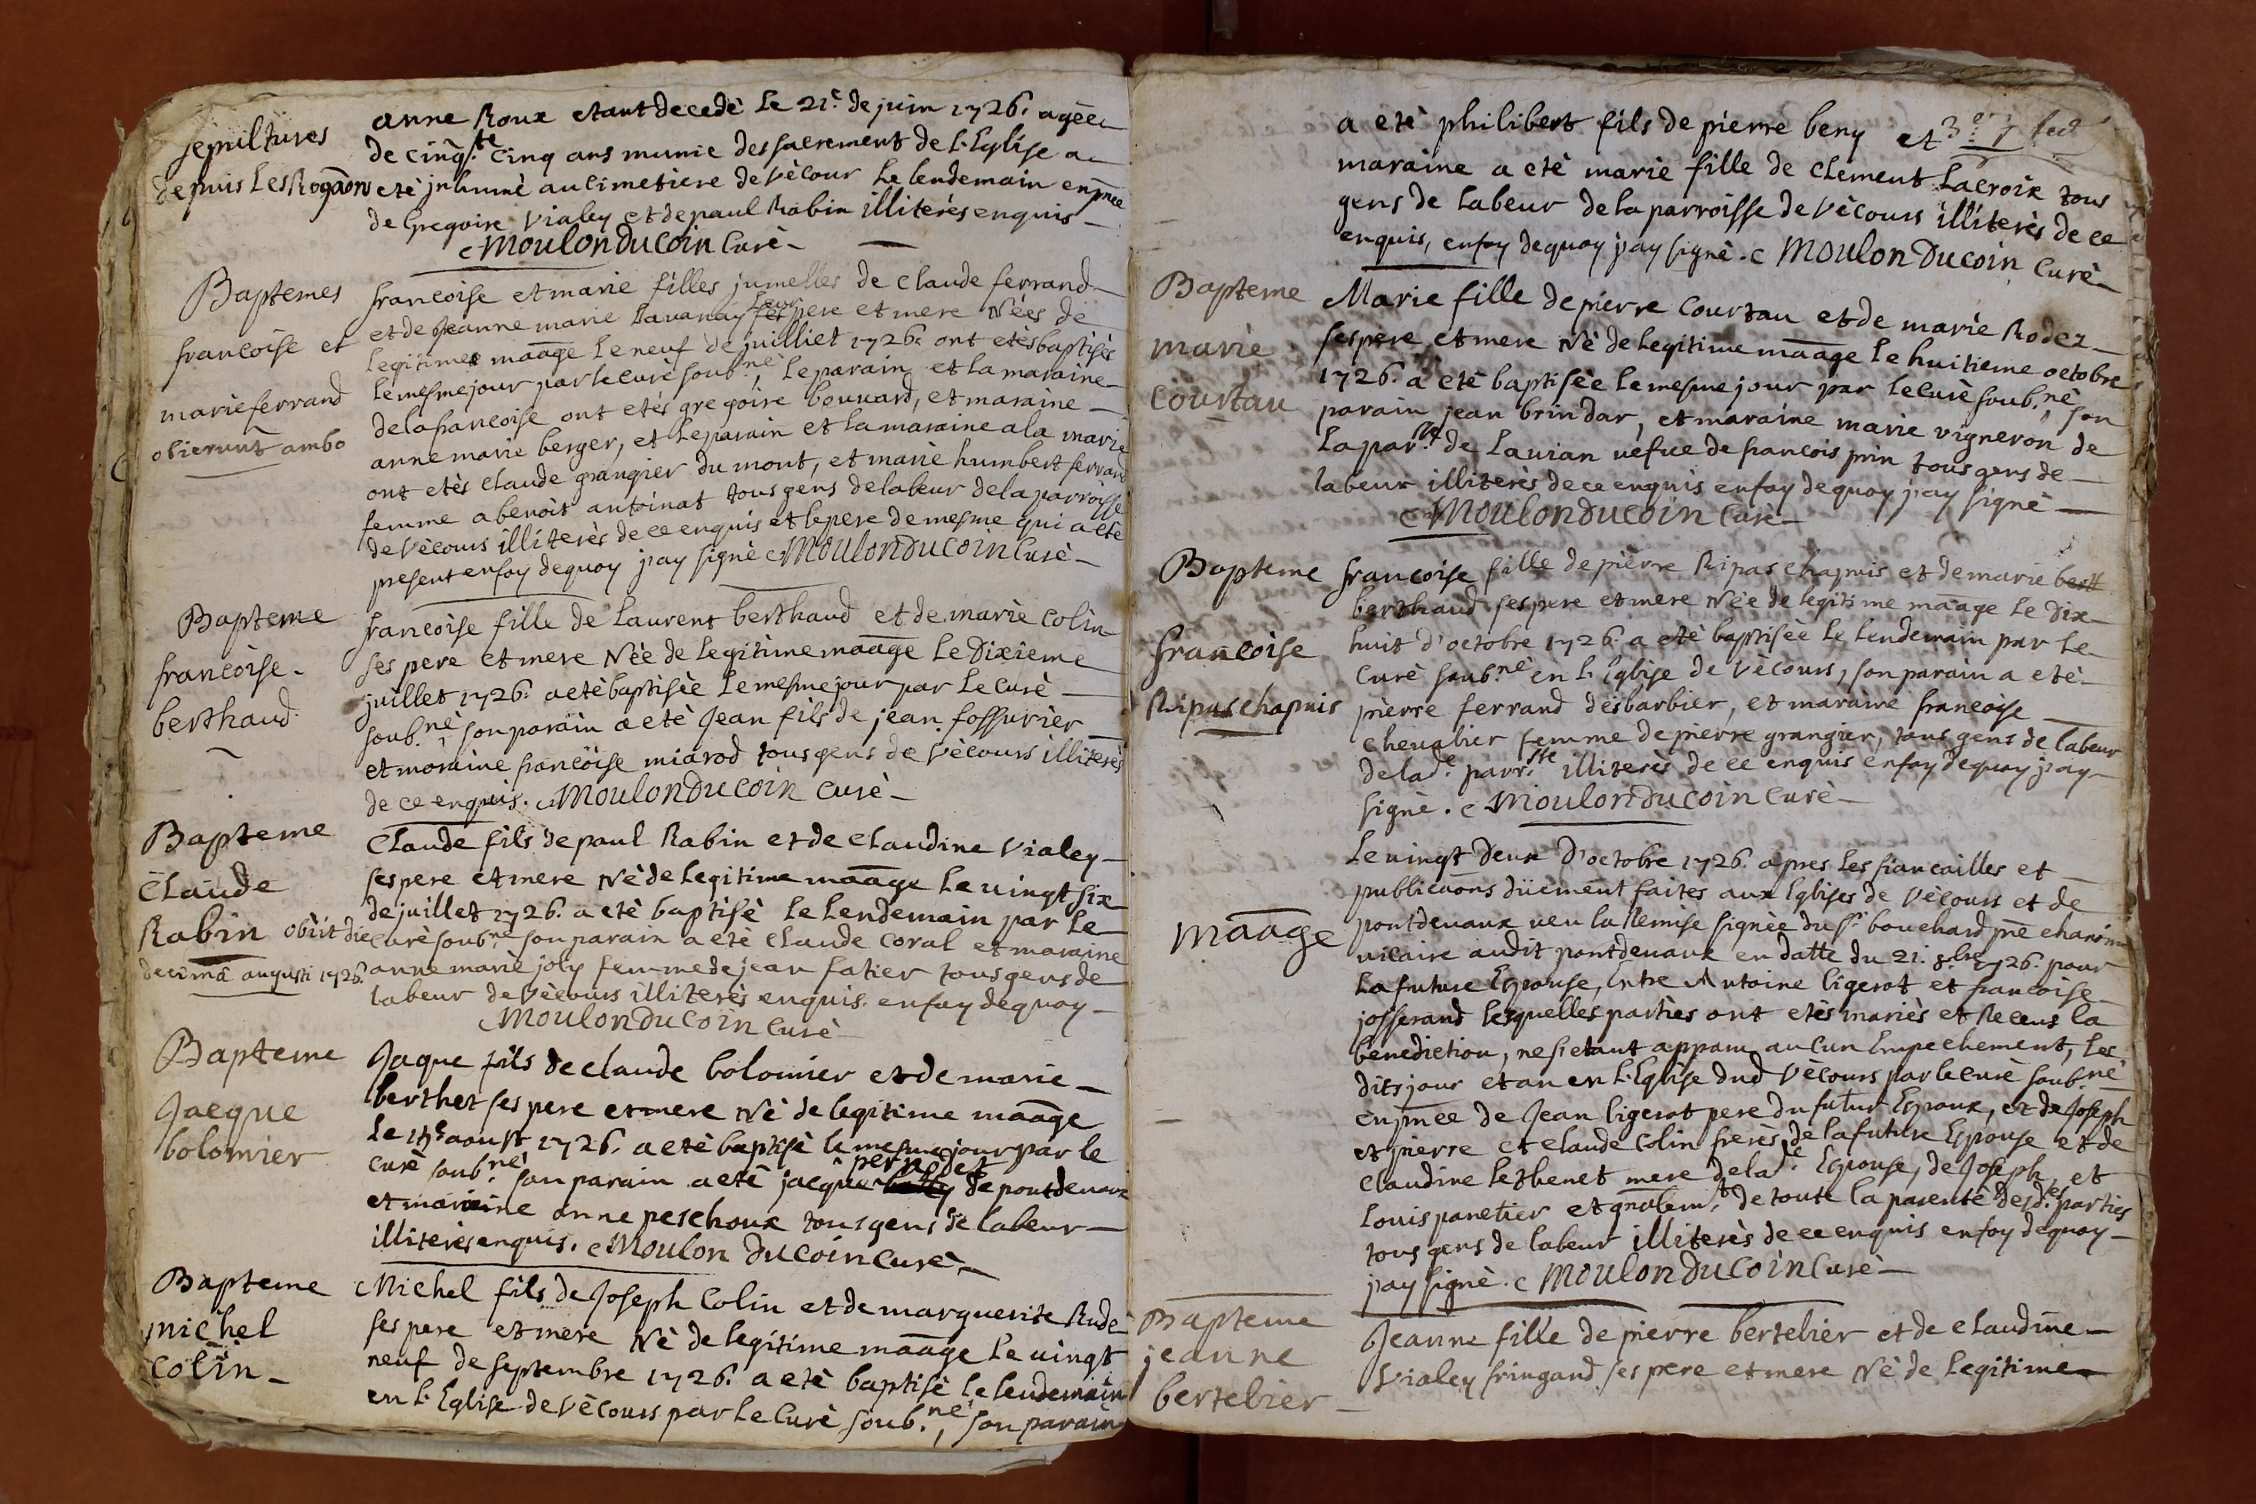 sepultures
depuis Les Rogaõns
anne Roux etant decedè Le 21e. de juin 1726. ageèe
de cinq.te cinq ans munie des sacrement de L'Eglise a
etè jnhumè au cimetiere de Vècour Le lendemain en p̃nce
de Gregoire Vialey et de paul Rabin illiterès enquis
Moulon Ducoin Curè
Baptemes
francoise et
marie ferrand
obierunt ambo
francoise et marie filles jumelles de Claude ferrand
et de Jeanne marie Lavanay leur pere et mere Nèes de
Legitimes maãge Le neuf de juilliet 1726. ont etès baptisès
Le mesme jour par le curè soub.nè, Le parain et la maraine
de la francoise ont etès gregoire bouvard, et maraine
anne marie berger, et le parain et la maraine a la marie
ont etès Claude grangier du mont, et marie humbert ferrand
femme a benoit antoinat tous gens de labeur de la parroisse
de Vècours illiterès de ce enquis et le pere de mesme qui a etè
present en foy de quoy j'ay signè Moulon Ducoin Curè
Bapteme
francoise
berthaud
francoise fille de Laurent berthaud et de marie Colin
ses pere et mere Nèe de Legitime maãge Le Dixieme
juillet 1726. a etè baptisèe Le mesme jour par Le curè
soub.nè, son parain a etè Jean fils de jean fossurier
et moraine francoise miarod tous gens de Vècours illiterès
de ce enquis. Moulon Ducoin Curè
Bapteme
Claude
Rabin obiit die
decimã augusti 1726.
Claude fils de paul Rabin et de Claudine Vialey
ses pere et mere Nè de Legitime maãge Le vingt six
de juillet 1726. a etè baptisè Le Lendemain par Le
curè soub.nè son parain a etè Claude Coral et maraine
anne marie joly femme de jean fatier tous gens de
labeur de Vècours illiterès enquis. en foy de quoy
Moulon Ducoin Curè
Bapteme
Jacque
bolomier
Jaque fils de Claude bolomier et de marie
berthet ses pere et mere Nè de legitime maãge
Le aoust 1726. a etè baptisè le mesme jour par le
curè soub.nè son parain a etè jacque pernodet de pontdevaux
et maraine anne peschoux tous gens de labeur
illiterès enquis. Moulon Ducoin Curè
Bapteme
michel
Colin
Michel fils de Joseph Colin et de marguerite Rude
ses pere et mere Nè de legitime maãge Le vingt
neuf de septembre 1726. a etè baptisè le lendemain
en L'Eglise de Vècours par Le Curè soub.nè, son parain
a etè philibert fils de pierre beny et
maraine a etè marie fille de Clement Lacroix tous
gens de Labeur de la parroisse de Vècours illiterès de ce
enquis, en foy de quoy j'ay signè. Moulon Ducoin Curè
Bapteme
marie
Courtau
Marie fille de pierre Courtau et de marie Rodez
ses pere et mere Nè de Legitime maãge Le huitieme octobre
1726. a etè baptisèe Le mesme jour par Le curè soub.nè, son
parain jean brindar, et maraine marie vigneron de
La par.sse de Lavian vefve de francois prin tous gens de
labeur illiterès de ce enquis en foy de quoy j'ay signè
Moulon Ducoin Curè
Bapteme
francoise
Ripas chapuis
francoise fille de pierre Ripas chapuis et de marie bert
berthaud ses pere et mere Nèe de legitime maãge Le Dix
huit d'octobre 1726. a etè baptisèe Le lendemain par Le
Curè soub.nè en L'Eglise de Vècours, son parain a etè
pierre ferrand desbarbier, et maraine francoise
chevalier femme de pierre grangier, tous gens de labeur
de lad.e parr.sse illiterès de ce enquis en foy de quoy j'ay
signè. Moulon Ducoin Curè
maãge
Le vingt deux d'octobre 1726. apres Les fiancailles et
publicaõns düement faites aux Eglises de Vècours et de
pontdevaux veu la Remise signèe du sr. bouchard p̃re
vicaire audit pontdevaux en datte du 21. 8bre 1726. pour
La future Epouse, Entre Antoine ligerot et francoise
josserand Lesquelles partiès ont etès mariès et Receus la
benediction, ne s'etant apparu aucun Empechement, Les
dits jour et an en L'Eglise dud Vècours par le curè soub.nè
en p̃nce de Jean ligerot pere du futur Epoux, et de Joseph
et pierre et Claude Colin freres de la future Epouse et de
Claudine Lethenet mere de lad.e Epouse, de Joseph et
Louis panetier et gñalem.t de toute la parentè desd.tes parties
tous gens de labeur illiterès de ce enquis en foy de quoy
j'ay signè. Moulon Ducoin Curè
Bapteme
jeanne
bertelier
Jeanne fille de pierre bertelier et de Claudine
Vialey fringand ses pere et mere Nè de Legitime